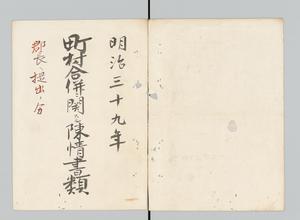 明治三十九年
町村合併ニ関スル陳情書類
郡長ヘ提出ノ分